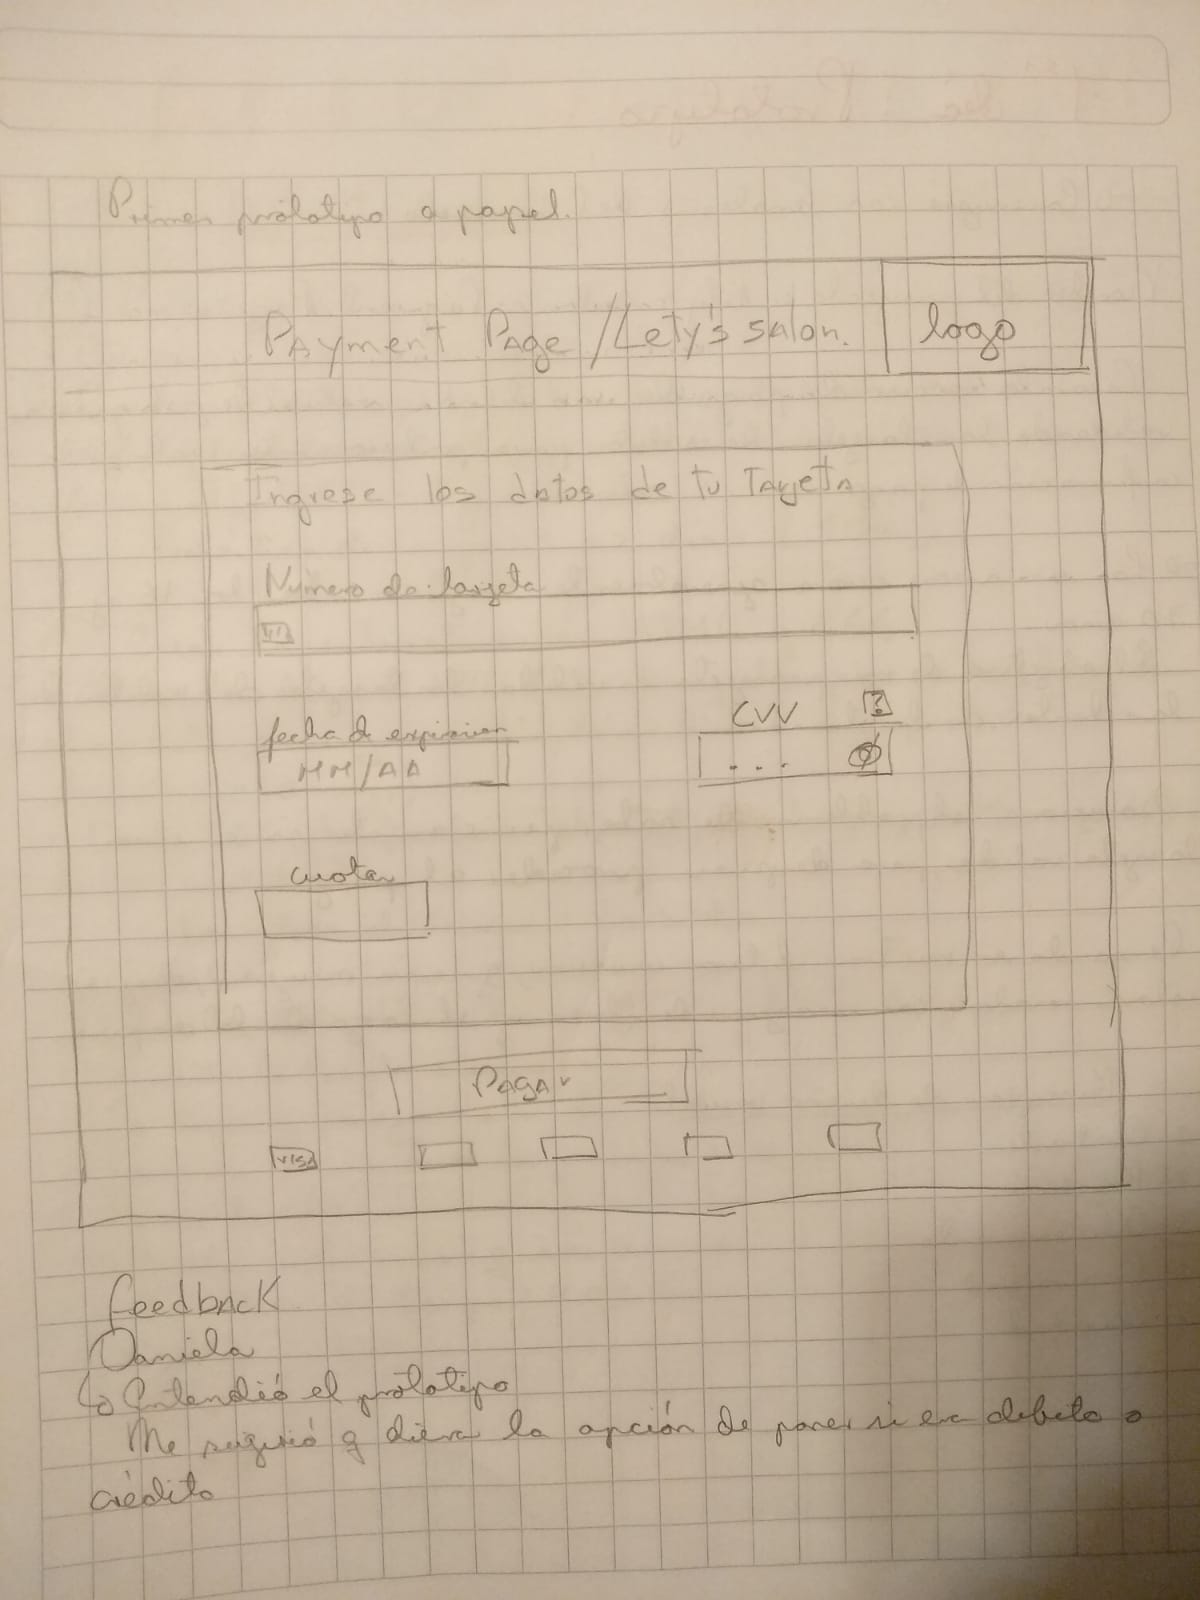 Primer prototypo a papel.
Payment Page /Lety's salon.
logo
Ingrese los datos de tu Tarjeta
Número de tarjeta
fecha d expiración
CVV ?
MM/AA
...
cuotas
Pagar
VISA
Feedback
Daniela
↳ Entendió el prototipo
Me sugirió q diera la opción de poner si era debito o
crédito